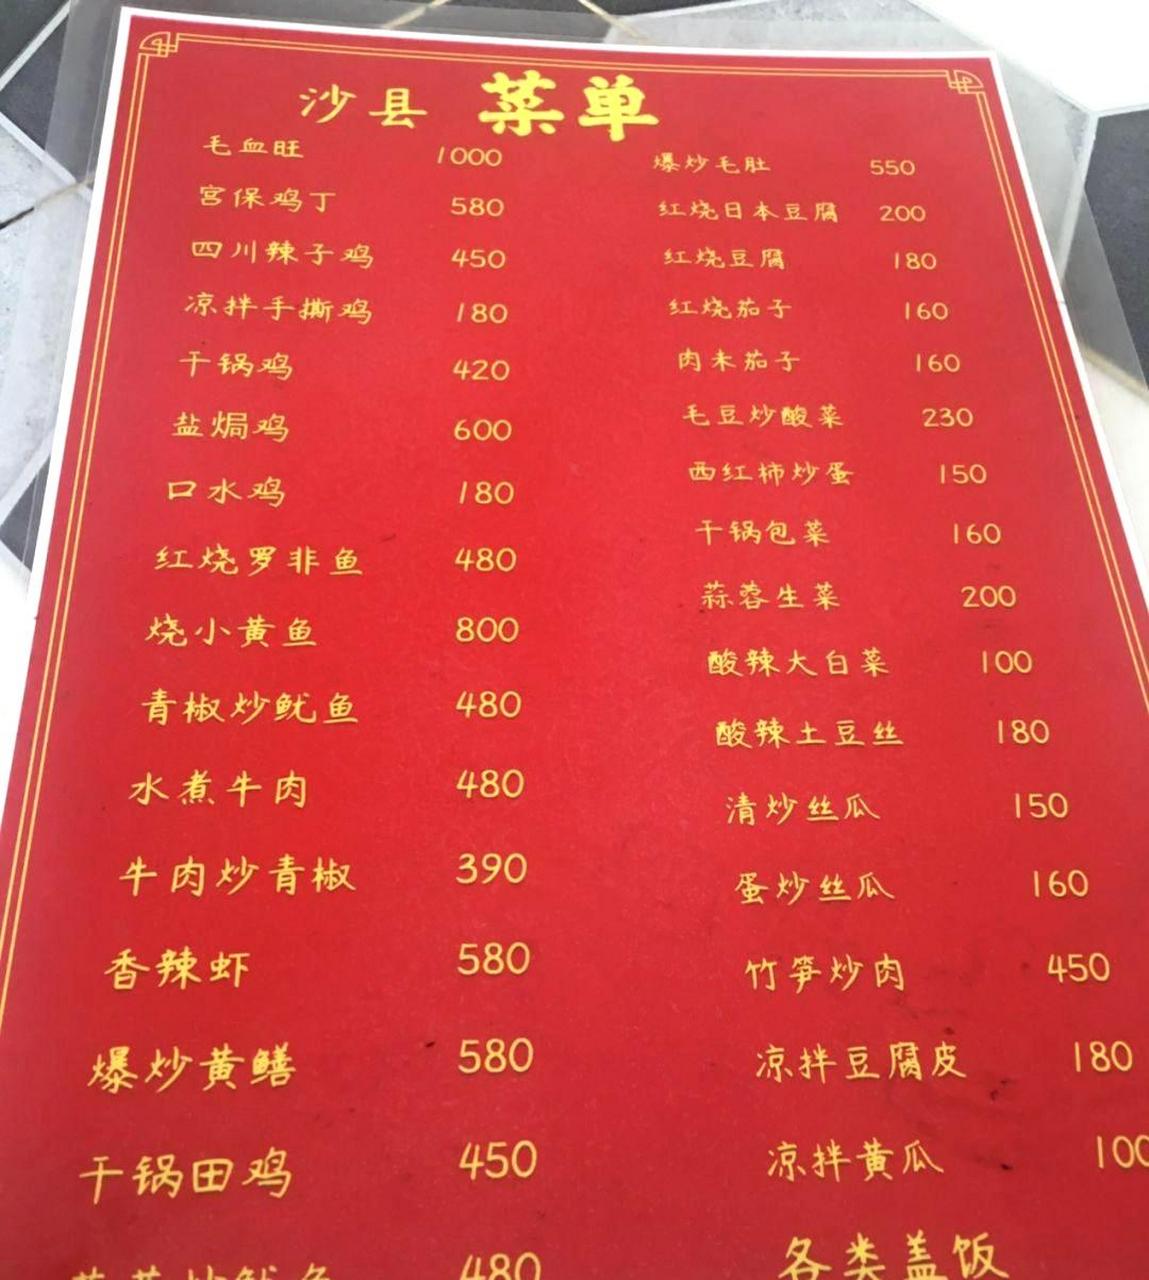 沙县 菜单
毛血旺 1000
宫保鸡丁 580
四川辣子鸡 450
凉拌手撕鸡 180
干锅鸡 420
盐焗鸡 600
口水鸡 180
红烧罗非鱼 480
烧小黄鱼 800
青椒炒鱿鱼 480
水煮牛肉 480
牛肉炒青椒 390
香辣虾 580
爆炒黄鳝 580
干锅田鸡 450
炒鱿鱼 480
爆炒毛肚 550
红烧日本豆腐 200
红烧豆腐 180
红烧茄子 160
肉未茄子 160
毛豆炒酸菜 230
西红柿炒蛋 150
干锅包菜 160
蒜蓉生菜 200
酸辣大白菜 100
酸辣土豆丝 180
清炒丝瓜 150
蛋炒丝瓜 160
竹笋炒肉 450
凉拌豆腐皮 180
凉拌黄瓜 100
各类盖饭